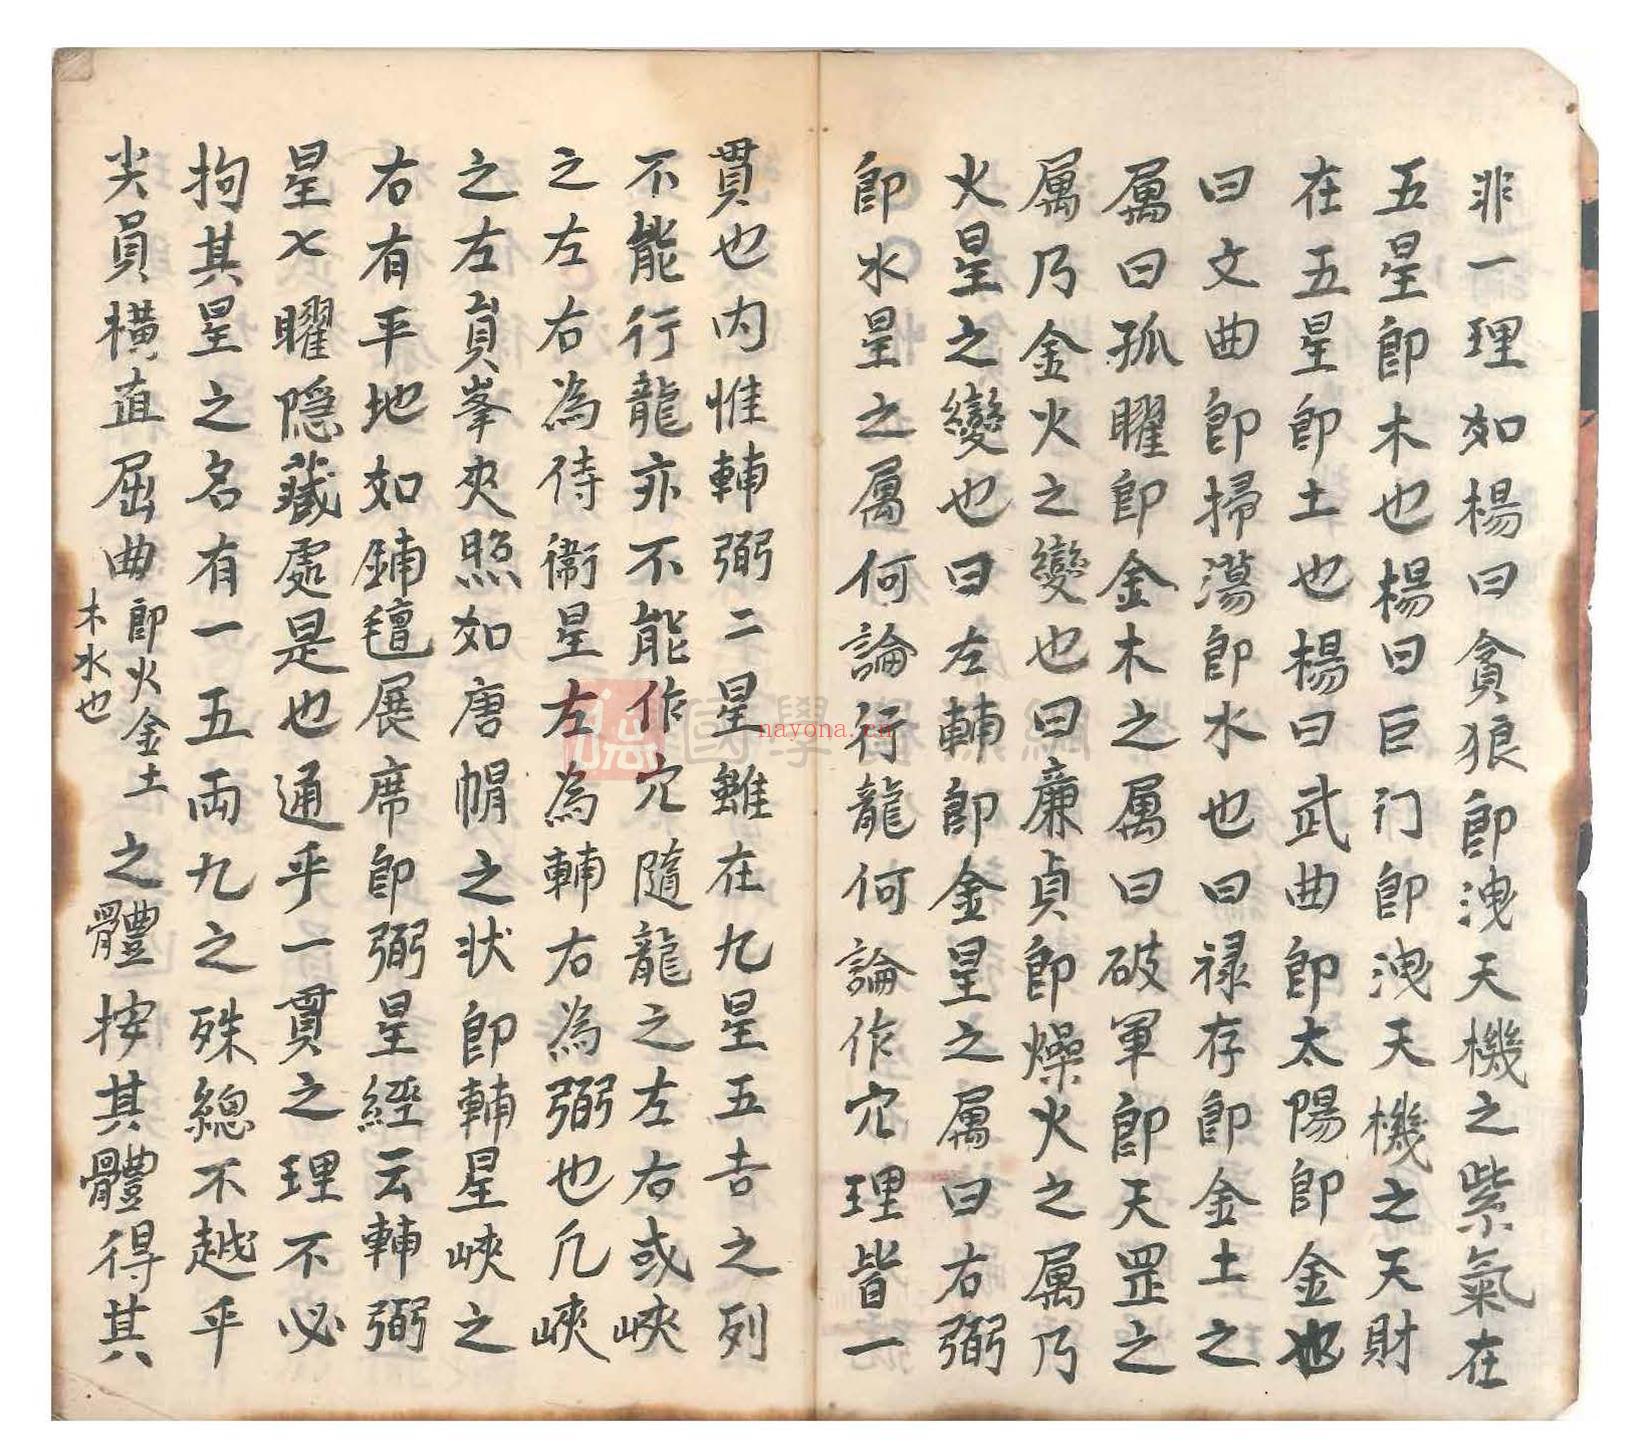 非一理如楊曰貪狼即洩天機之紫氣在
五星即木也楊曰巨门即洩天機之天財
在五星即土也楊曰武曲即太陽即金也
曰文曲即掃蕩即水也曰禄存即金土之
属曰孤曜即金木之属曰破軍即天罡之
属乃金火之變也曰廉貞即燥火之属乃
火星之變也曰左輔即金星之属曰右弼
即水星之属何論行龍何論作穴理皆一
貫也内惟輔弼二星雖在九星五吉之列
不能行龍亦不能作穴隨龍之左右或峽
之左右為侍衛星左為輔右為弼也凡峽
之左右員峯夾照如唐帽之状即輔星峽之
右有平地如鋪氊展席即弼星經云輔弼
星七曜隠藏處是也通乎一貫之理不必
拘其星之名有一五両九之殊總不越乎
尖員横直屈曲即火金土木水也之體按其體得其
國學 nayona.cn